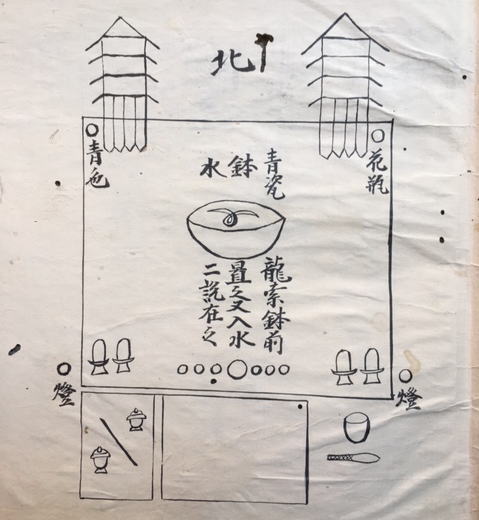 北
花瓶
青瓷
鉢
水
青色
龍索鉢前
置之又入水
二説在之
燈
燈